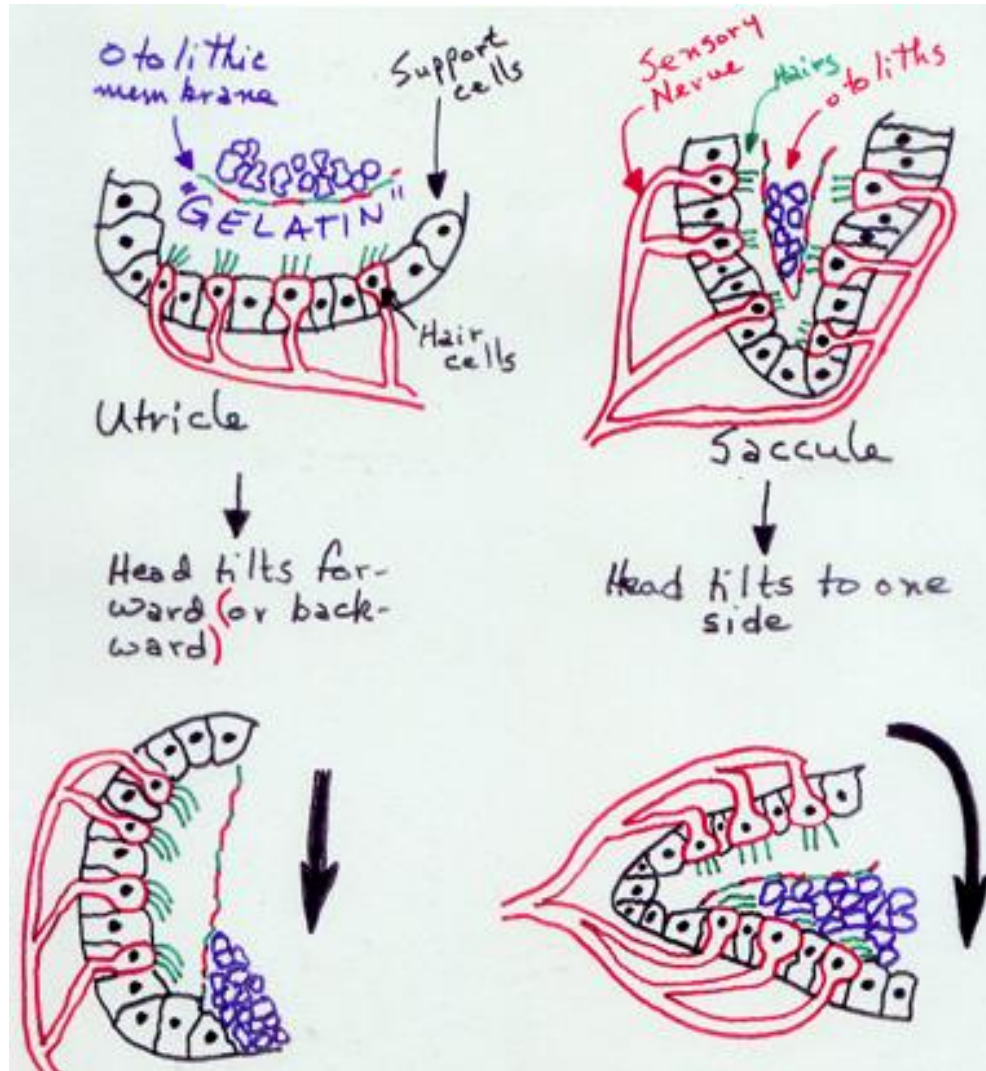 Otolithic
membrane
Support
cells
"GELATIN"
Hair
cells
Utricle
Head tilts for-
ward (or back-
ward)
Sensory
Nerve
Hairs
otoliths
Saccule
Head tilts to one
side